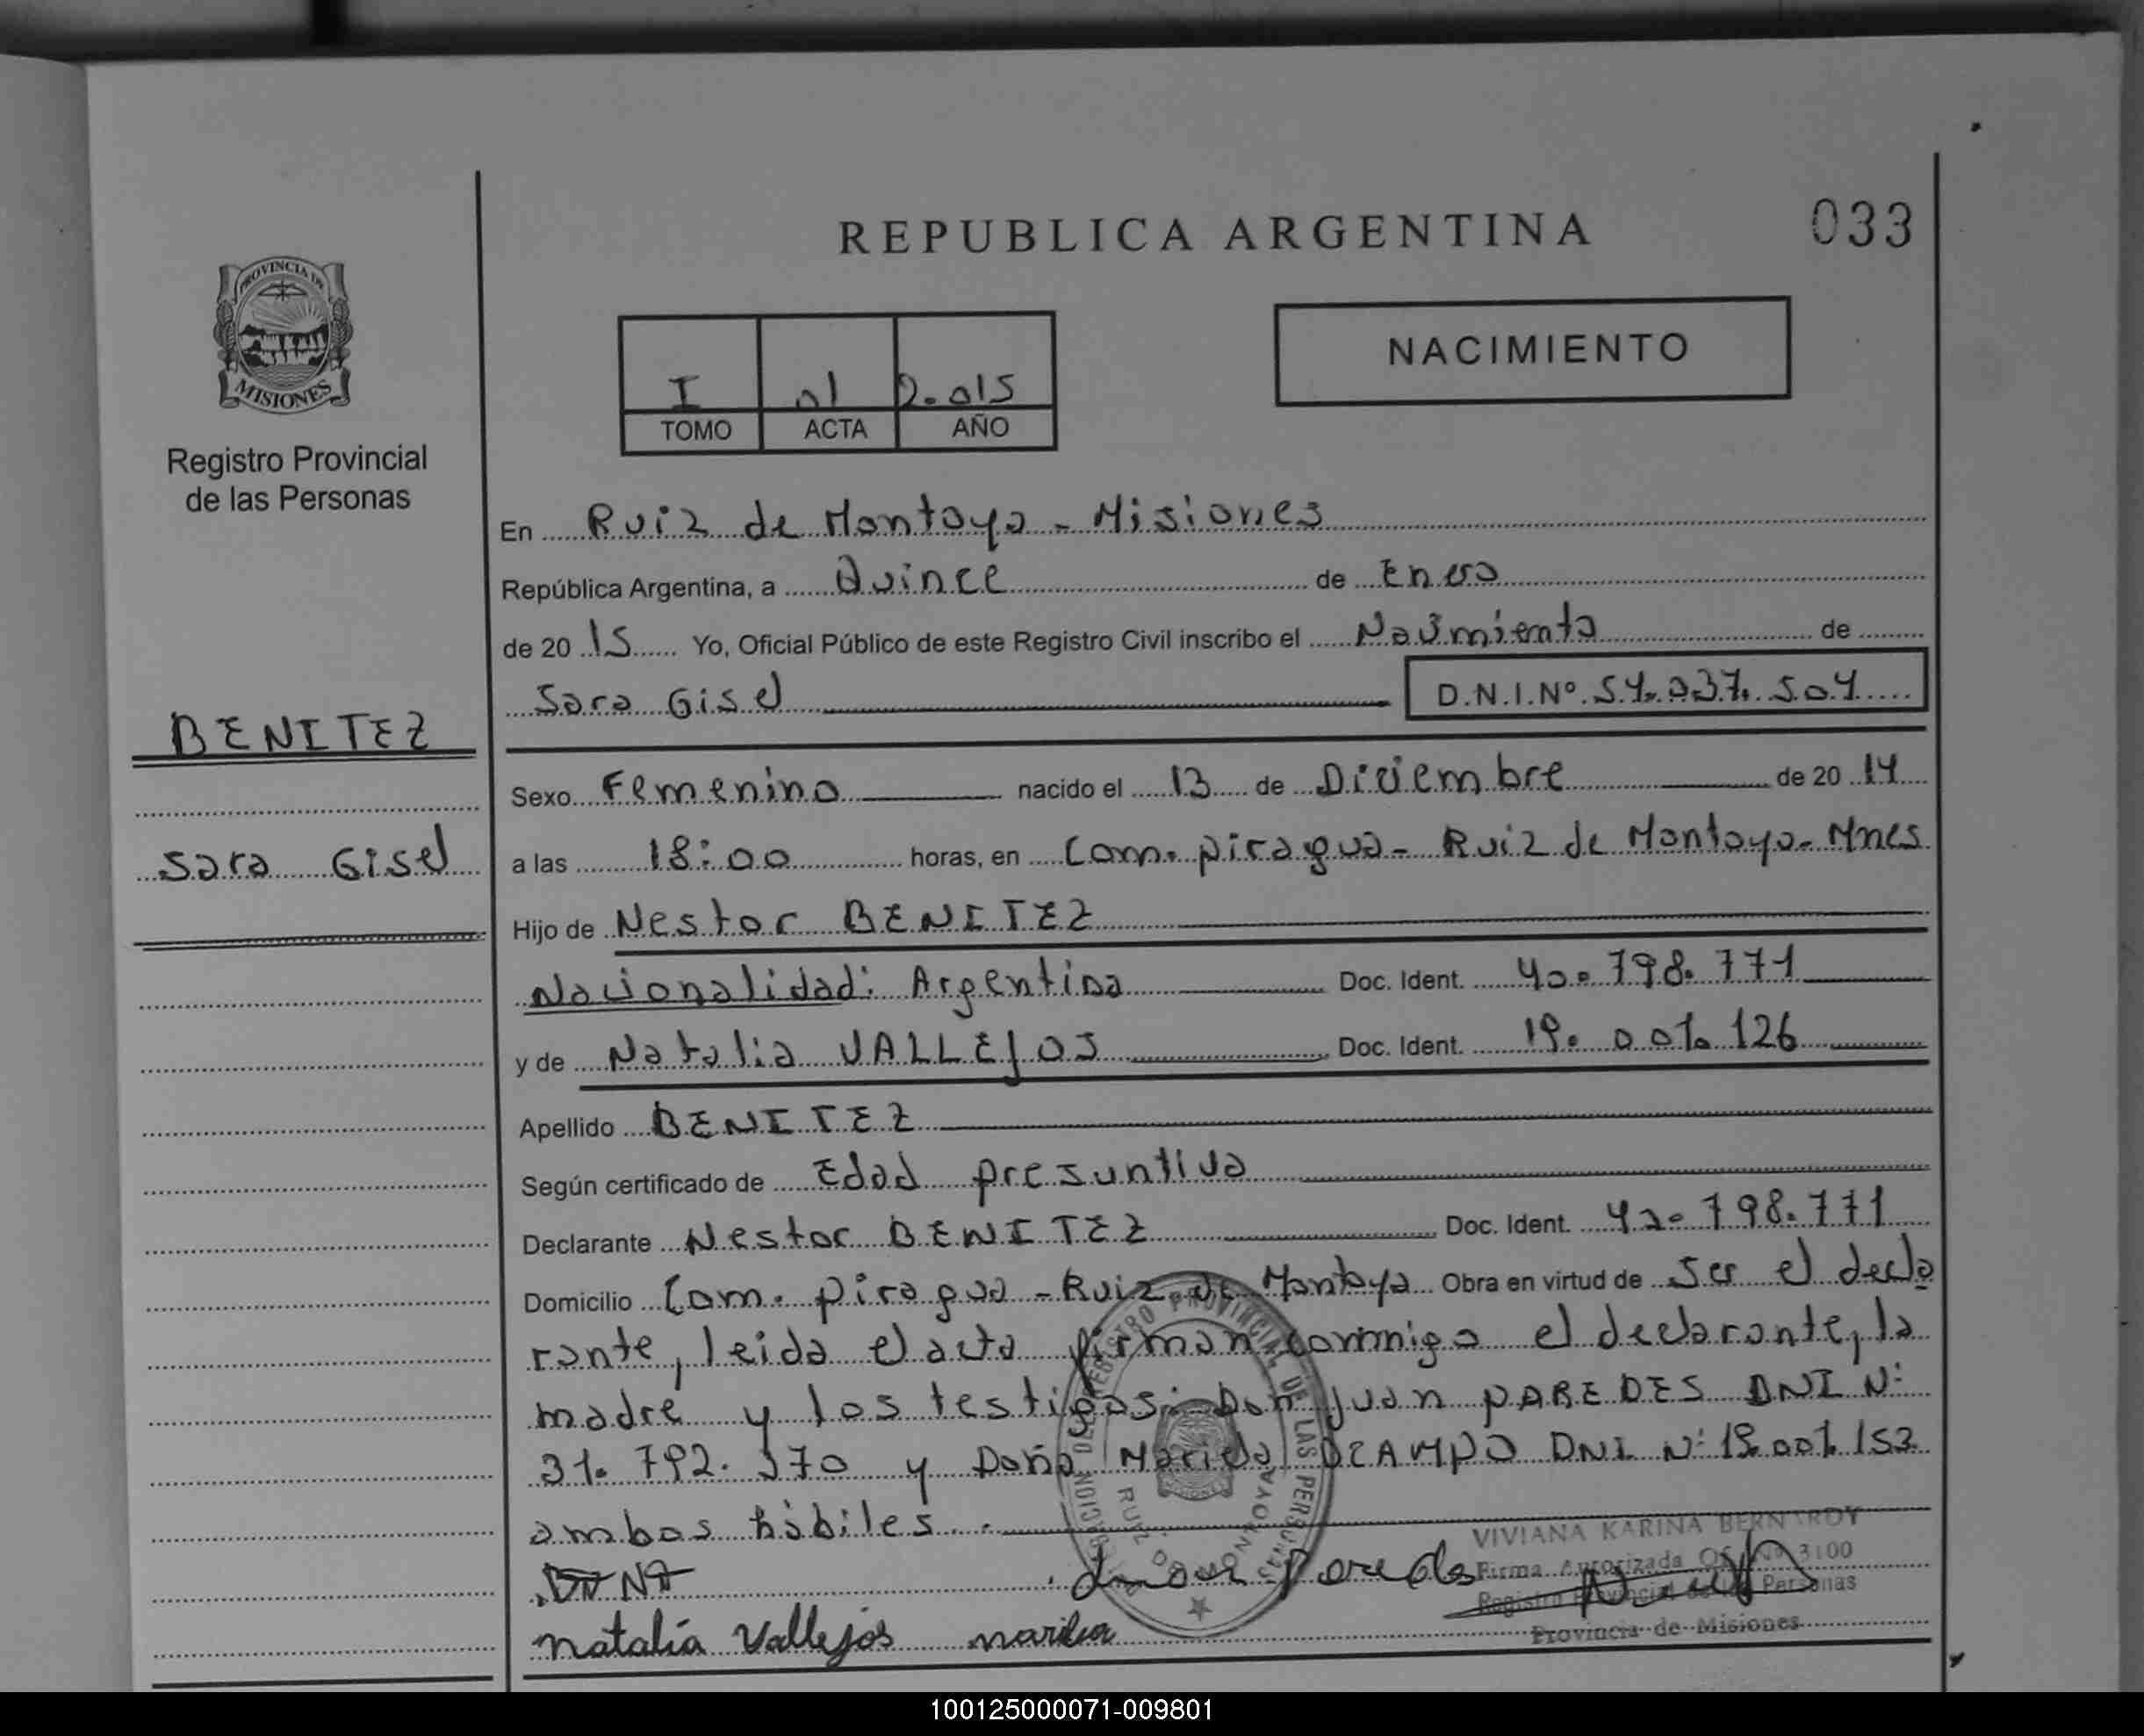 REPUBLICA ARGENTINA
033
PROVINCIA DE
MISIONES
Registro Provincial
de las Personas
I 01 2.015
TOMO ACTA AÑO
NACIMIENTO
En Ruiz de Montoya - Misiones
República Argentina, a Quince de Enero
de 20 15 Yo, Oficial Público de este Registro Civil inscribo el Nacimiento de
Sara Gisel D.N.I.Nº 54.237.504
BENITEZ
Sara Gisel
Sexo Femenino nacido el 13 de Diciembre de 20 14
a las 18:00 horas, en Com. piragua - Ruiz de Montoya - Mnes
Hijo de Nestor BENITEZ
Nacionalidad: Argentina Doc. Ident. 40.798.771
y de Natalia VALLEJOS Doc. Ident. 19.001.126
Apellido BENITEZ
Según certificado de Edad presuntiva
Declarante Nestor BENITEZ Doc. Ident. 40.798.771
Domicilio Com. piragua - Ruiz de Montoya Obra en virtud de Ser el decla
rante, leida el acta firman conmigo el declarante, la
madre y los testigos: Don Juan PAREDES DNI Nº
31.792.370 y Doña Mariela OCAMPO DNI Nº 19.001.153
ambos hábiles.
VIVIANA KARINA BERNARDY
Firma Autorizada Of. Nº 3100
Registro Provincial de las Personas
Provincia de Misiones
Paredes
natalia Vallejos
REGISTRO PROVINCIAL DE LAS PERSONAS
RUIZ DE MONTOYA
100125000071-009801